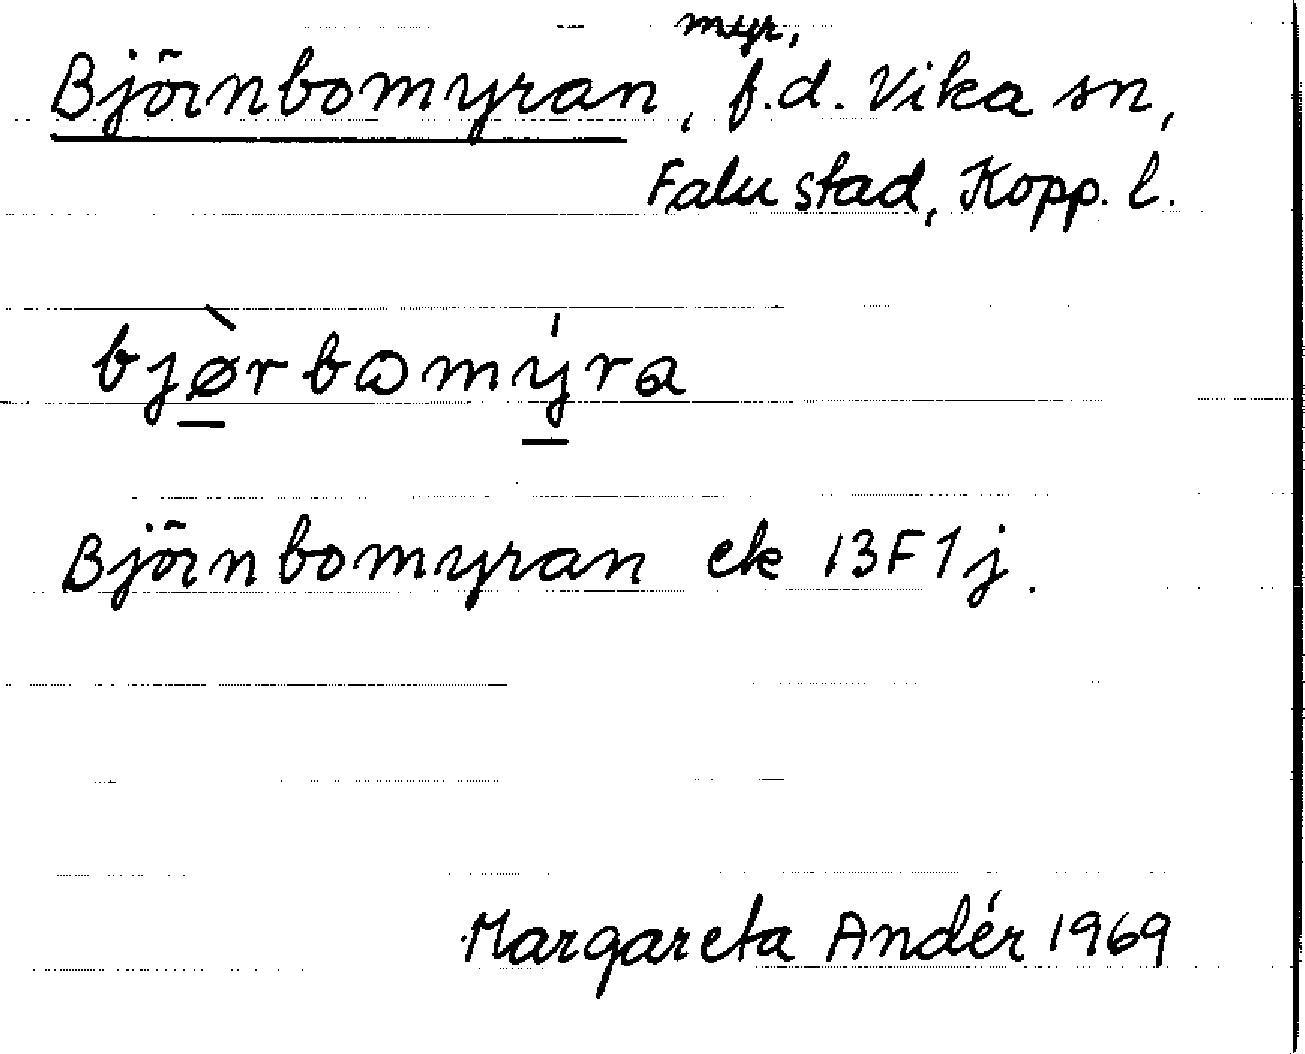 myr,
Björnbomyran, f.d. Vika sn,
Falu stad, Kopp. l.
bjø̀rbɷmýra
Björnbomyran ek 13F1j.
Margareta Andér 1969